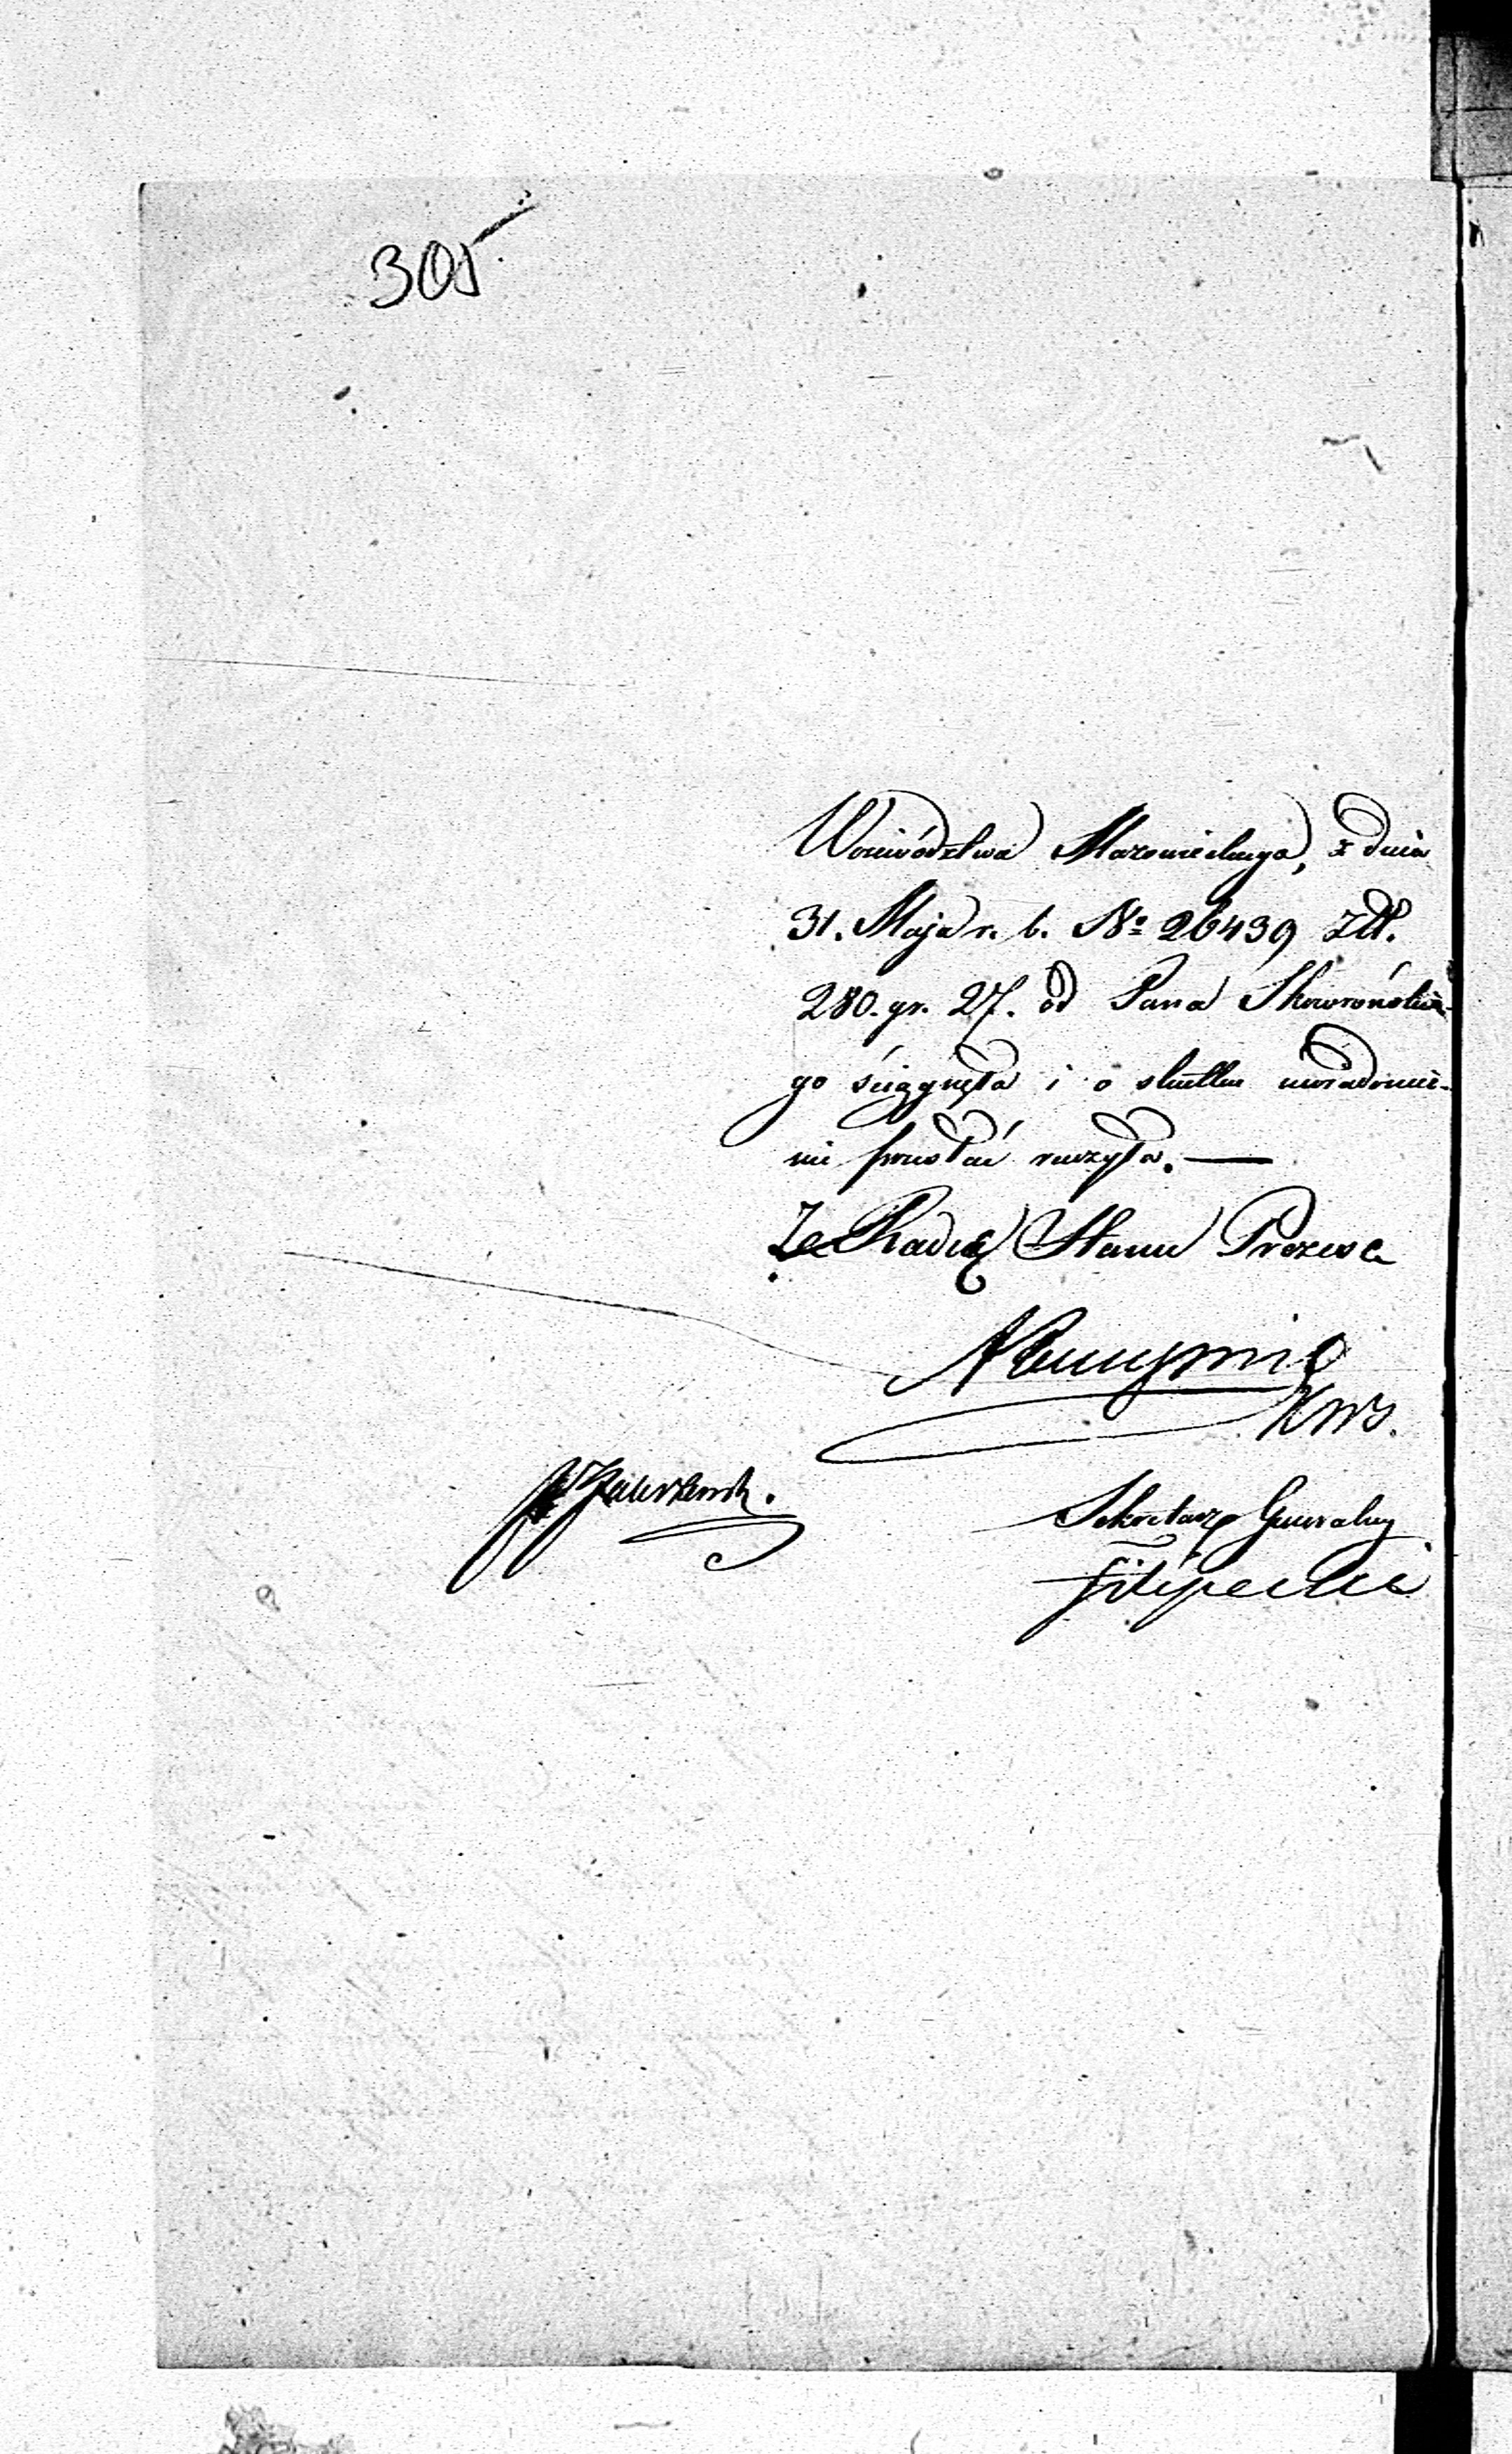 305
Woiewództwa Mazowieckiego, z dnia
31. Maja r. b. No 26439 Złł.
280. gr. 27. od Pana Skworońskie-
go ściągnęła i o skutku uwiadomie-
nie przesłać raczyła. —
Za Radcę Stanu Prezesa
KWS.
Sekretarz Generalny
Filipecki